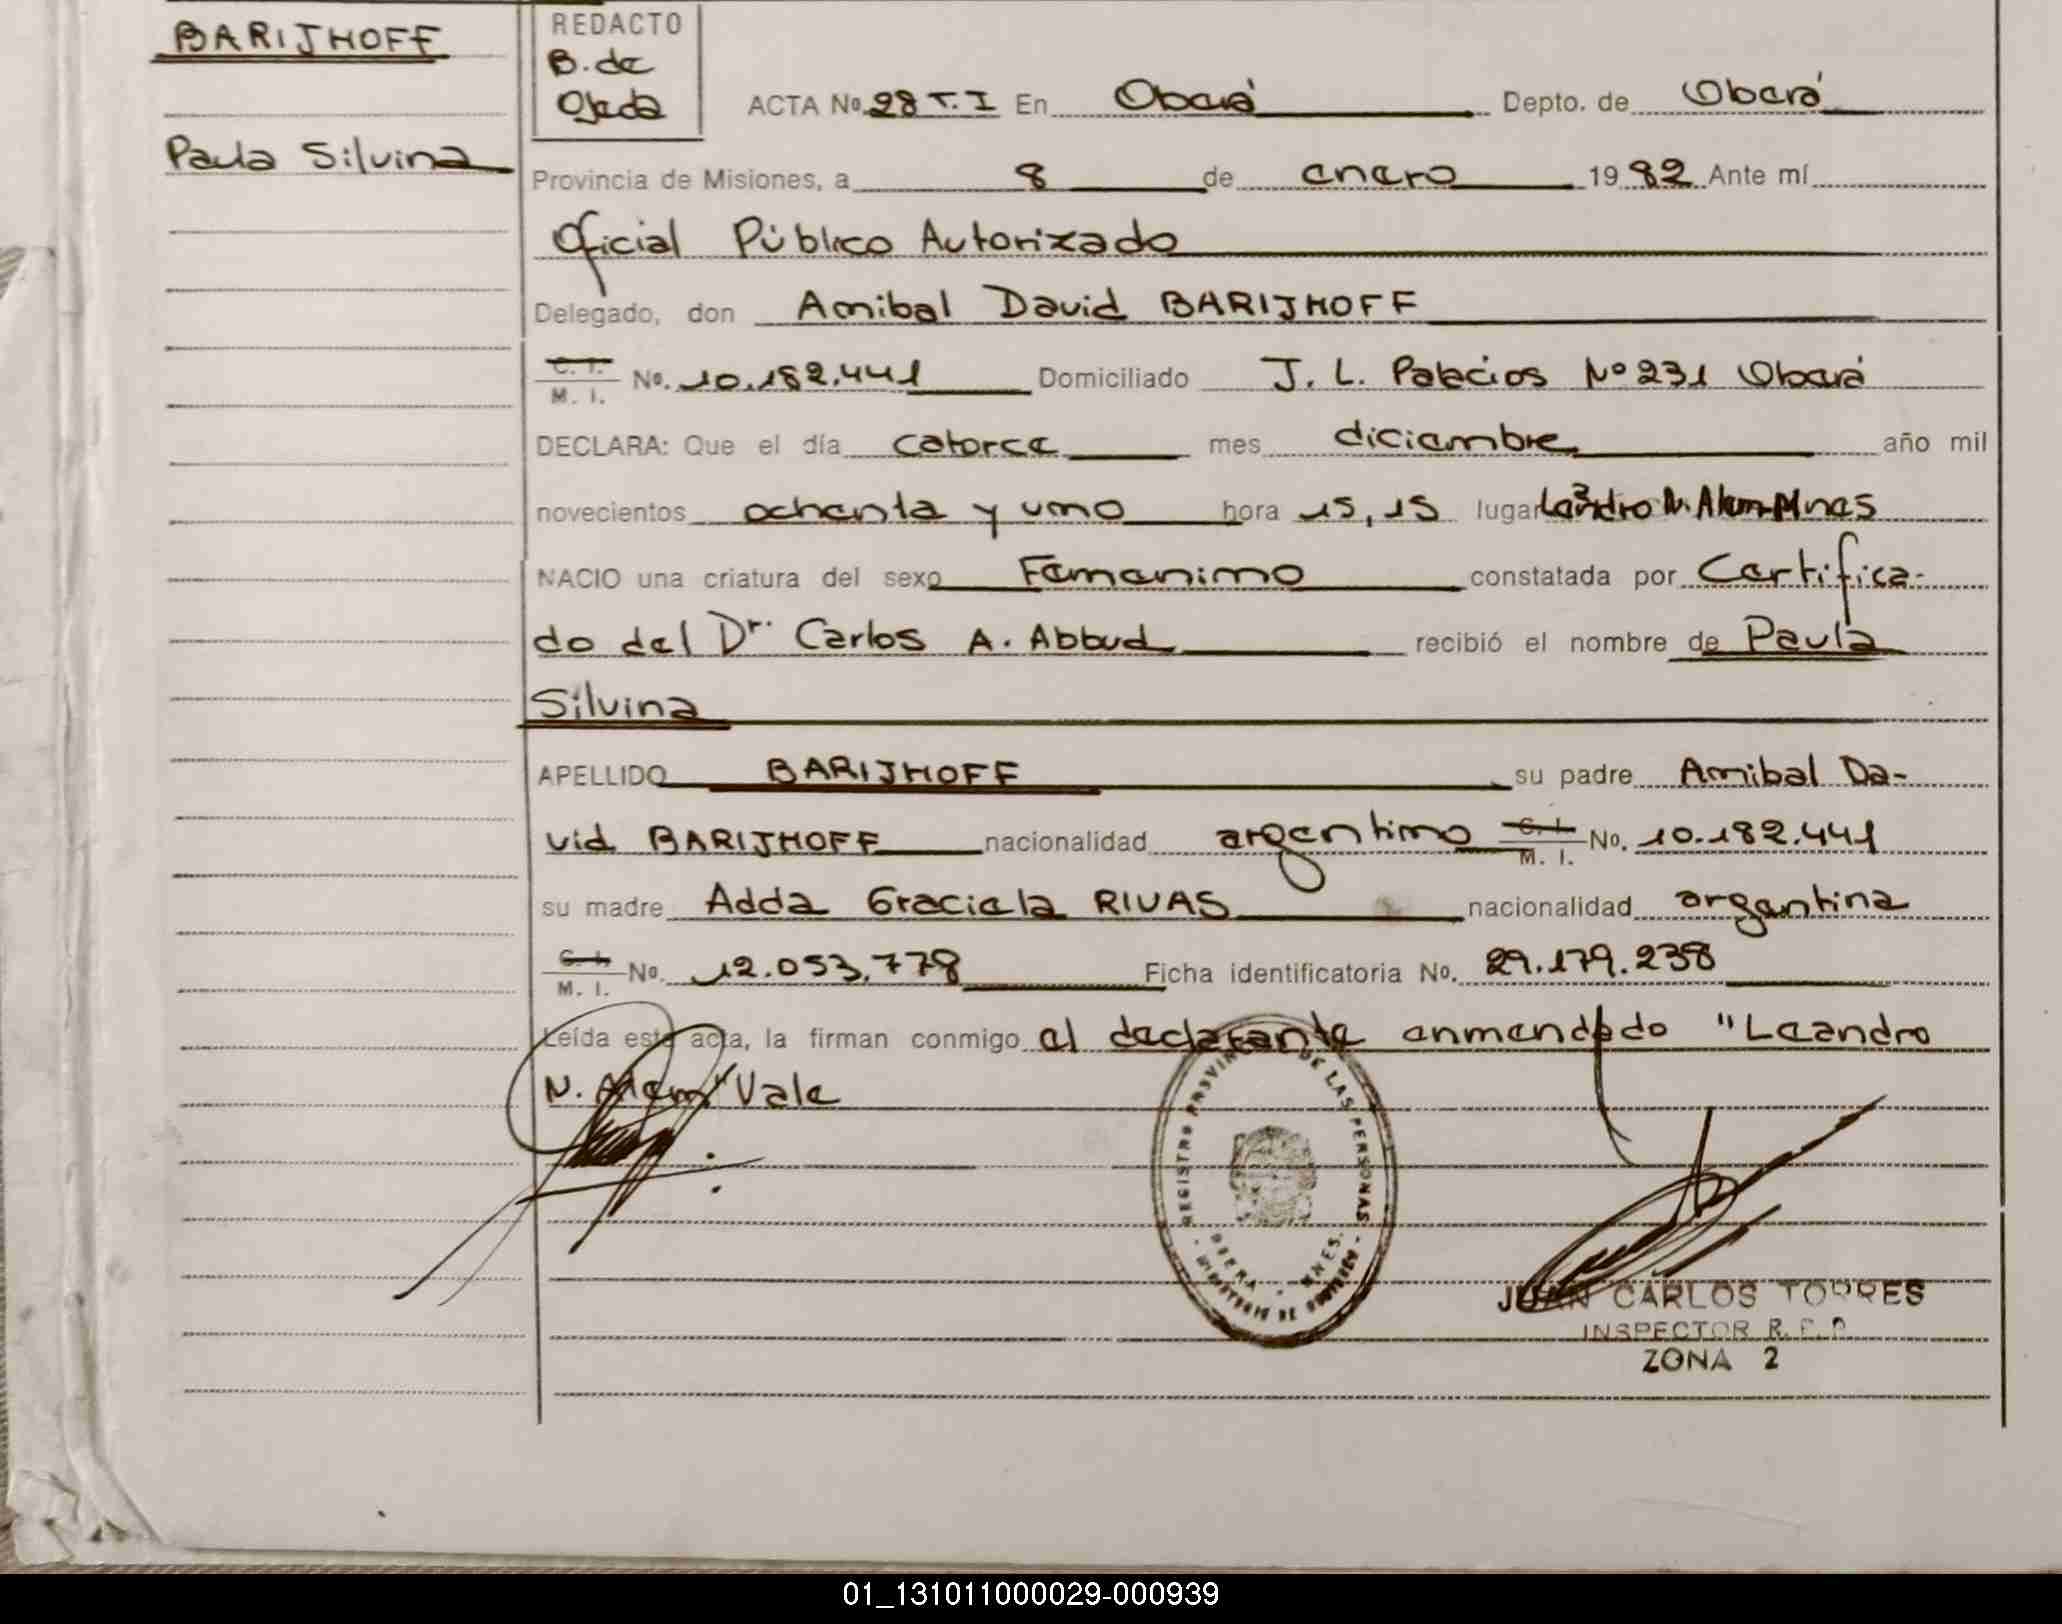 BARIJHOFF
Paula Silvina
REDACTO
B. de
Ojeda
ACTA No. 28 T. I En Oberá Depto. de Oberá
Provincia de Misiones, a 8 de enero 1982 Ante mí
Oficial Público Autorizado
Delegado, don Anibal David BARIJHOFF
C. I. M. I. No. 10.182.441 Domiciliado J. L. Palacios Nº 231 Oberá
DECLARA: Que el día catorce mes diciembre año mil
novecientos ochenta y uno hora 15,15 lugar Leandro N. Alem Mnes
NACIO una criatura del sexo Femenino constatada por Certifica-
do del Dr. Carlos A. Abbud recibió el nombre de Paula
Silvina
APELLIDO BARIJHOFF su padre Anibal Da-
vid BARIJHOFF nacionalidad argentino C. I. M. I. No. 10.182.441
su madre Adda Graciela RIVAS nacionalidad argentina
C. I. M. I. No. 12.053.778 Ficha identificatoria No. 29.179.238
Leída esta acta, la firman conmigo el declarante enmendado "Leandro
N. Alem" Vale
REGISTRO PROVINCIAL DE LAS PERSONAS
OBERA - MNES.
MINISTERIO DE GOBIERNO
JUAN CARLOS TORRES
INSPECTOR R. P. P.
ZONA 2
01_131011000029-000939